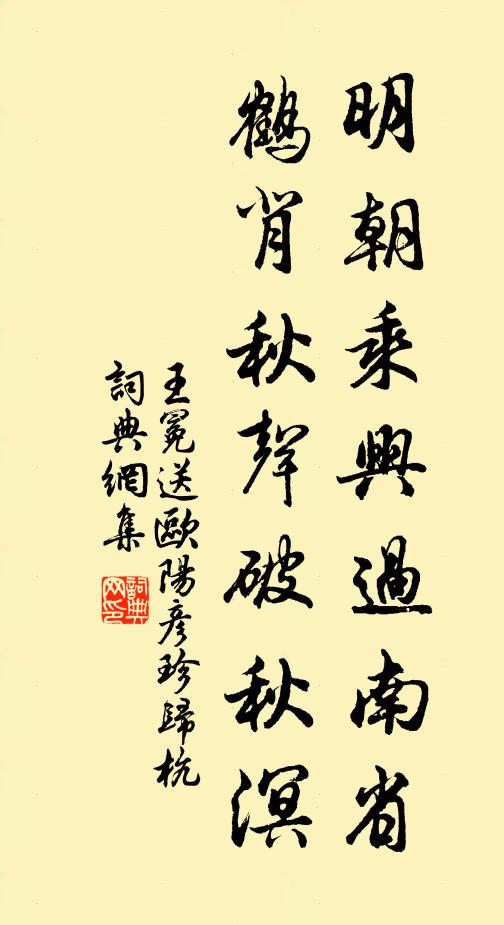 明朝乘興過南省
鶴背秋聲破秋溟
王冕送歐陽彥珍歸杭
詞典網集
詞典网印